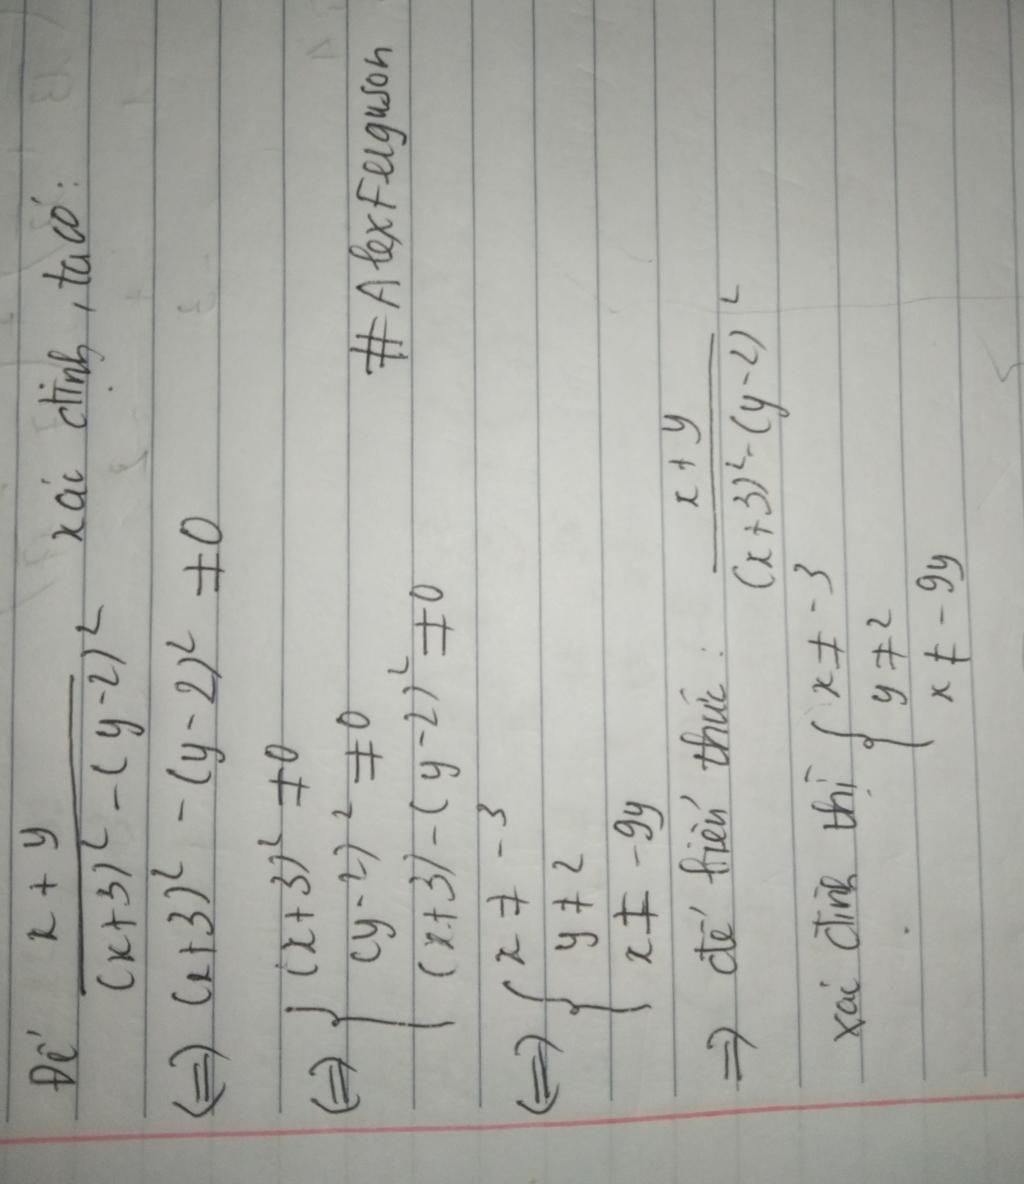 Để x + y
(x+3)² - (y-2)² xác định, ta có:
(=) (x+3)² - (y-2)² ≠ 0
(=) { (x+3)² ≠ 0
(y-2)² ≠ 0
(x+3) - (y-2)² ≠ 0
#AlexFerguson
(=) { x ≠ -3
y ≠ 2
x ≠ -9y
=) để biến thức: x + y
(x+3)² - (y-2)²
xác định thì { x ≠ -3
y ≠ 2
x ≠ -9y